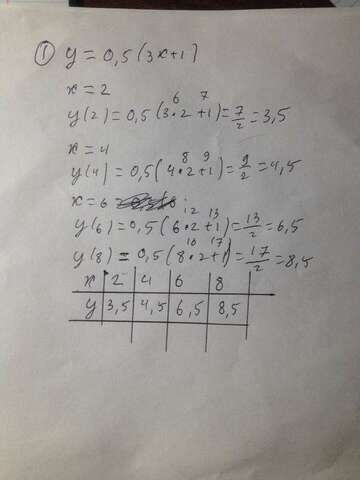 ① y = 0,5(3x+1)
x = 2
6 7
y(2) = 0,5(3·2+1) = 7/2 = 3,5
x = 4
8 9
y(4) = 0,5(4·2+1) = 9/2 = 4,5
x = 6
12 13
y(6) = 0,5(6·2+1) = 13/2 = 6,5
16 17
y(8) = 0,5(8·2+1) = 17/2 = 8,5
x 2 4 6 8
y 3,5 4,5 6,5 8,5